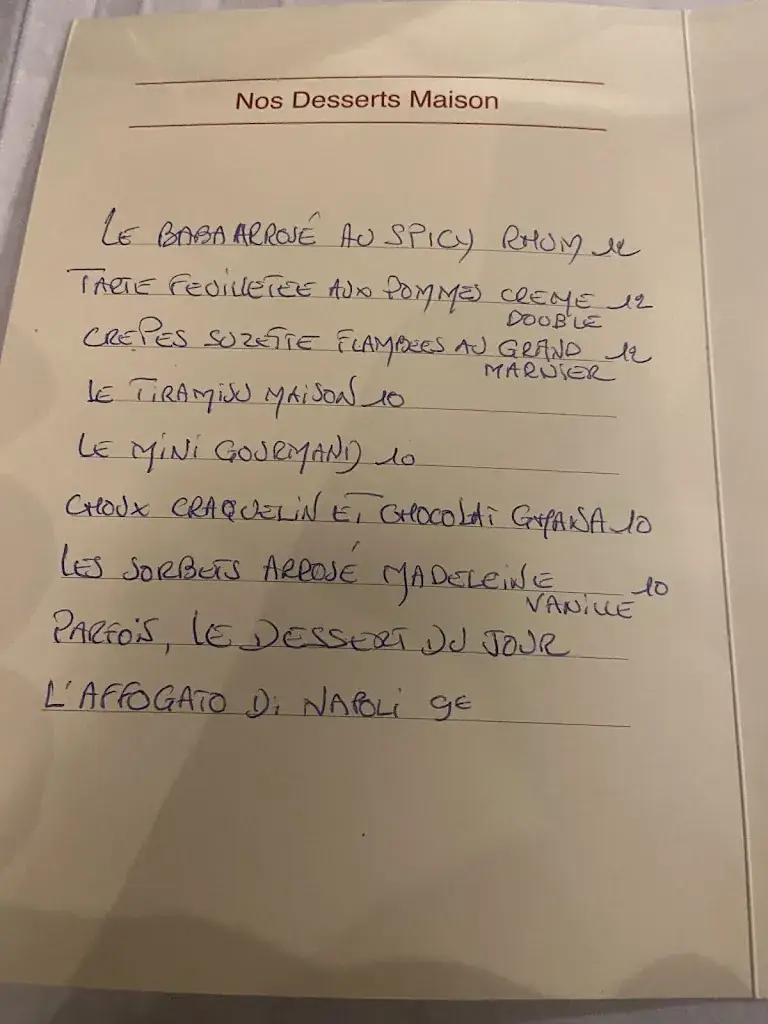 Nos Desserts Maison
LE BABA ARROSÉ AU SPICY RHUM 12
TARTE FEUILLETEE AUX POMMES CREME 12
DOUBLE
CREPES SUZETTE FLAMBEES AU GRAND 12
MARNIER
LE TIRAMISU MAISON 10
LE MINI GOURMAND 10
CHOUX CRAQUELIN ET CHOCOLAT GYANSA 10
LES SORBETS ARROSÉ MADELEINE 10
VANILLE
PARFOIS, LE DESSERT DU JOUR
L'AFFOGATO Di NAPOLi 9€